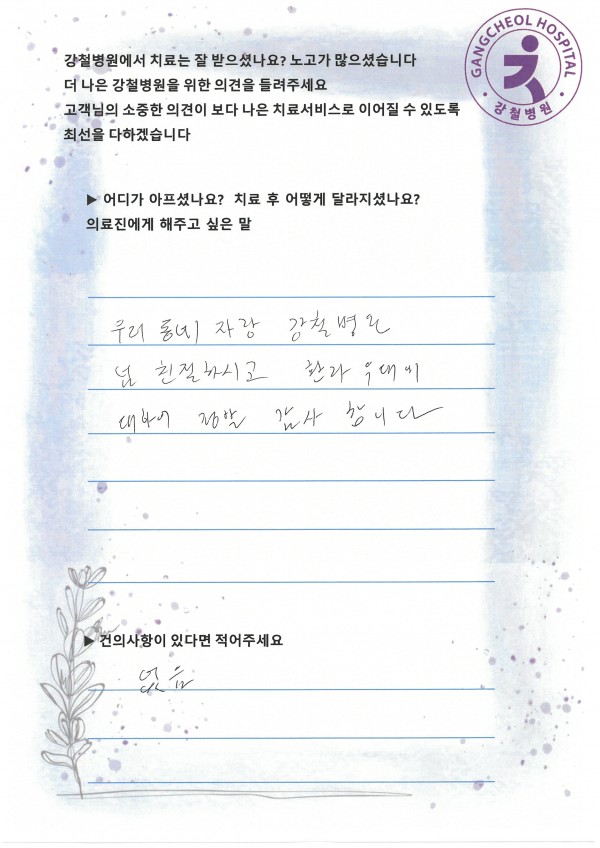 GANGCHEOL HOSPITAL
강철병원
강철병원에서 치료는 잘 받으셨나요? 노고가 많으셨습니다
더 나은 강철병원을 위한 의견을 들려주세요
고객님의 소중한 의견이 보다 나은 치료서비스로 이어질 수 있도록
최선을 다하겠습니다
▶ 어디가 아프셨나요? 치료 후 어떻게 달라지셨나요?
의료진에게 해주고 싶은 말
우리 동네 자랑 강철병원
넘 친절하시고 환자 우대에
정말 감사 합니다
▶ 건의사항이 있다면 적어주세요
없음